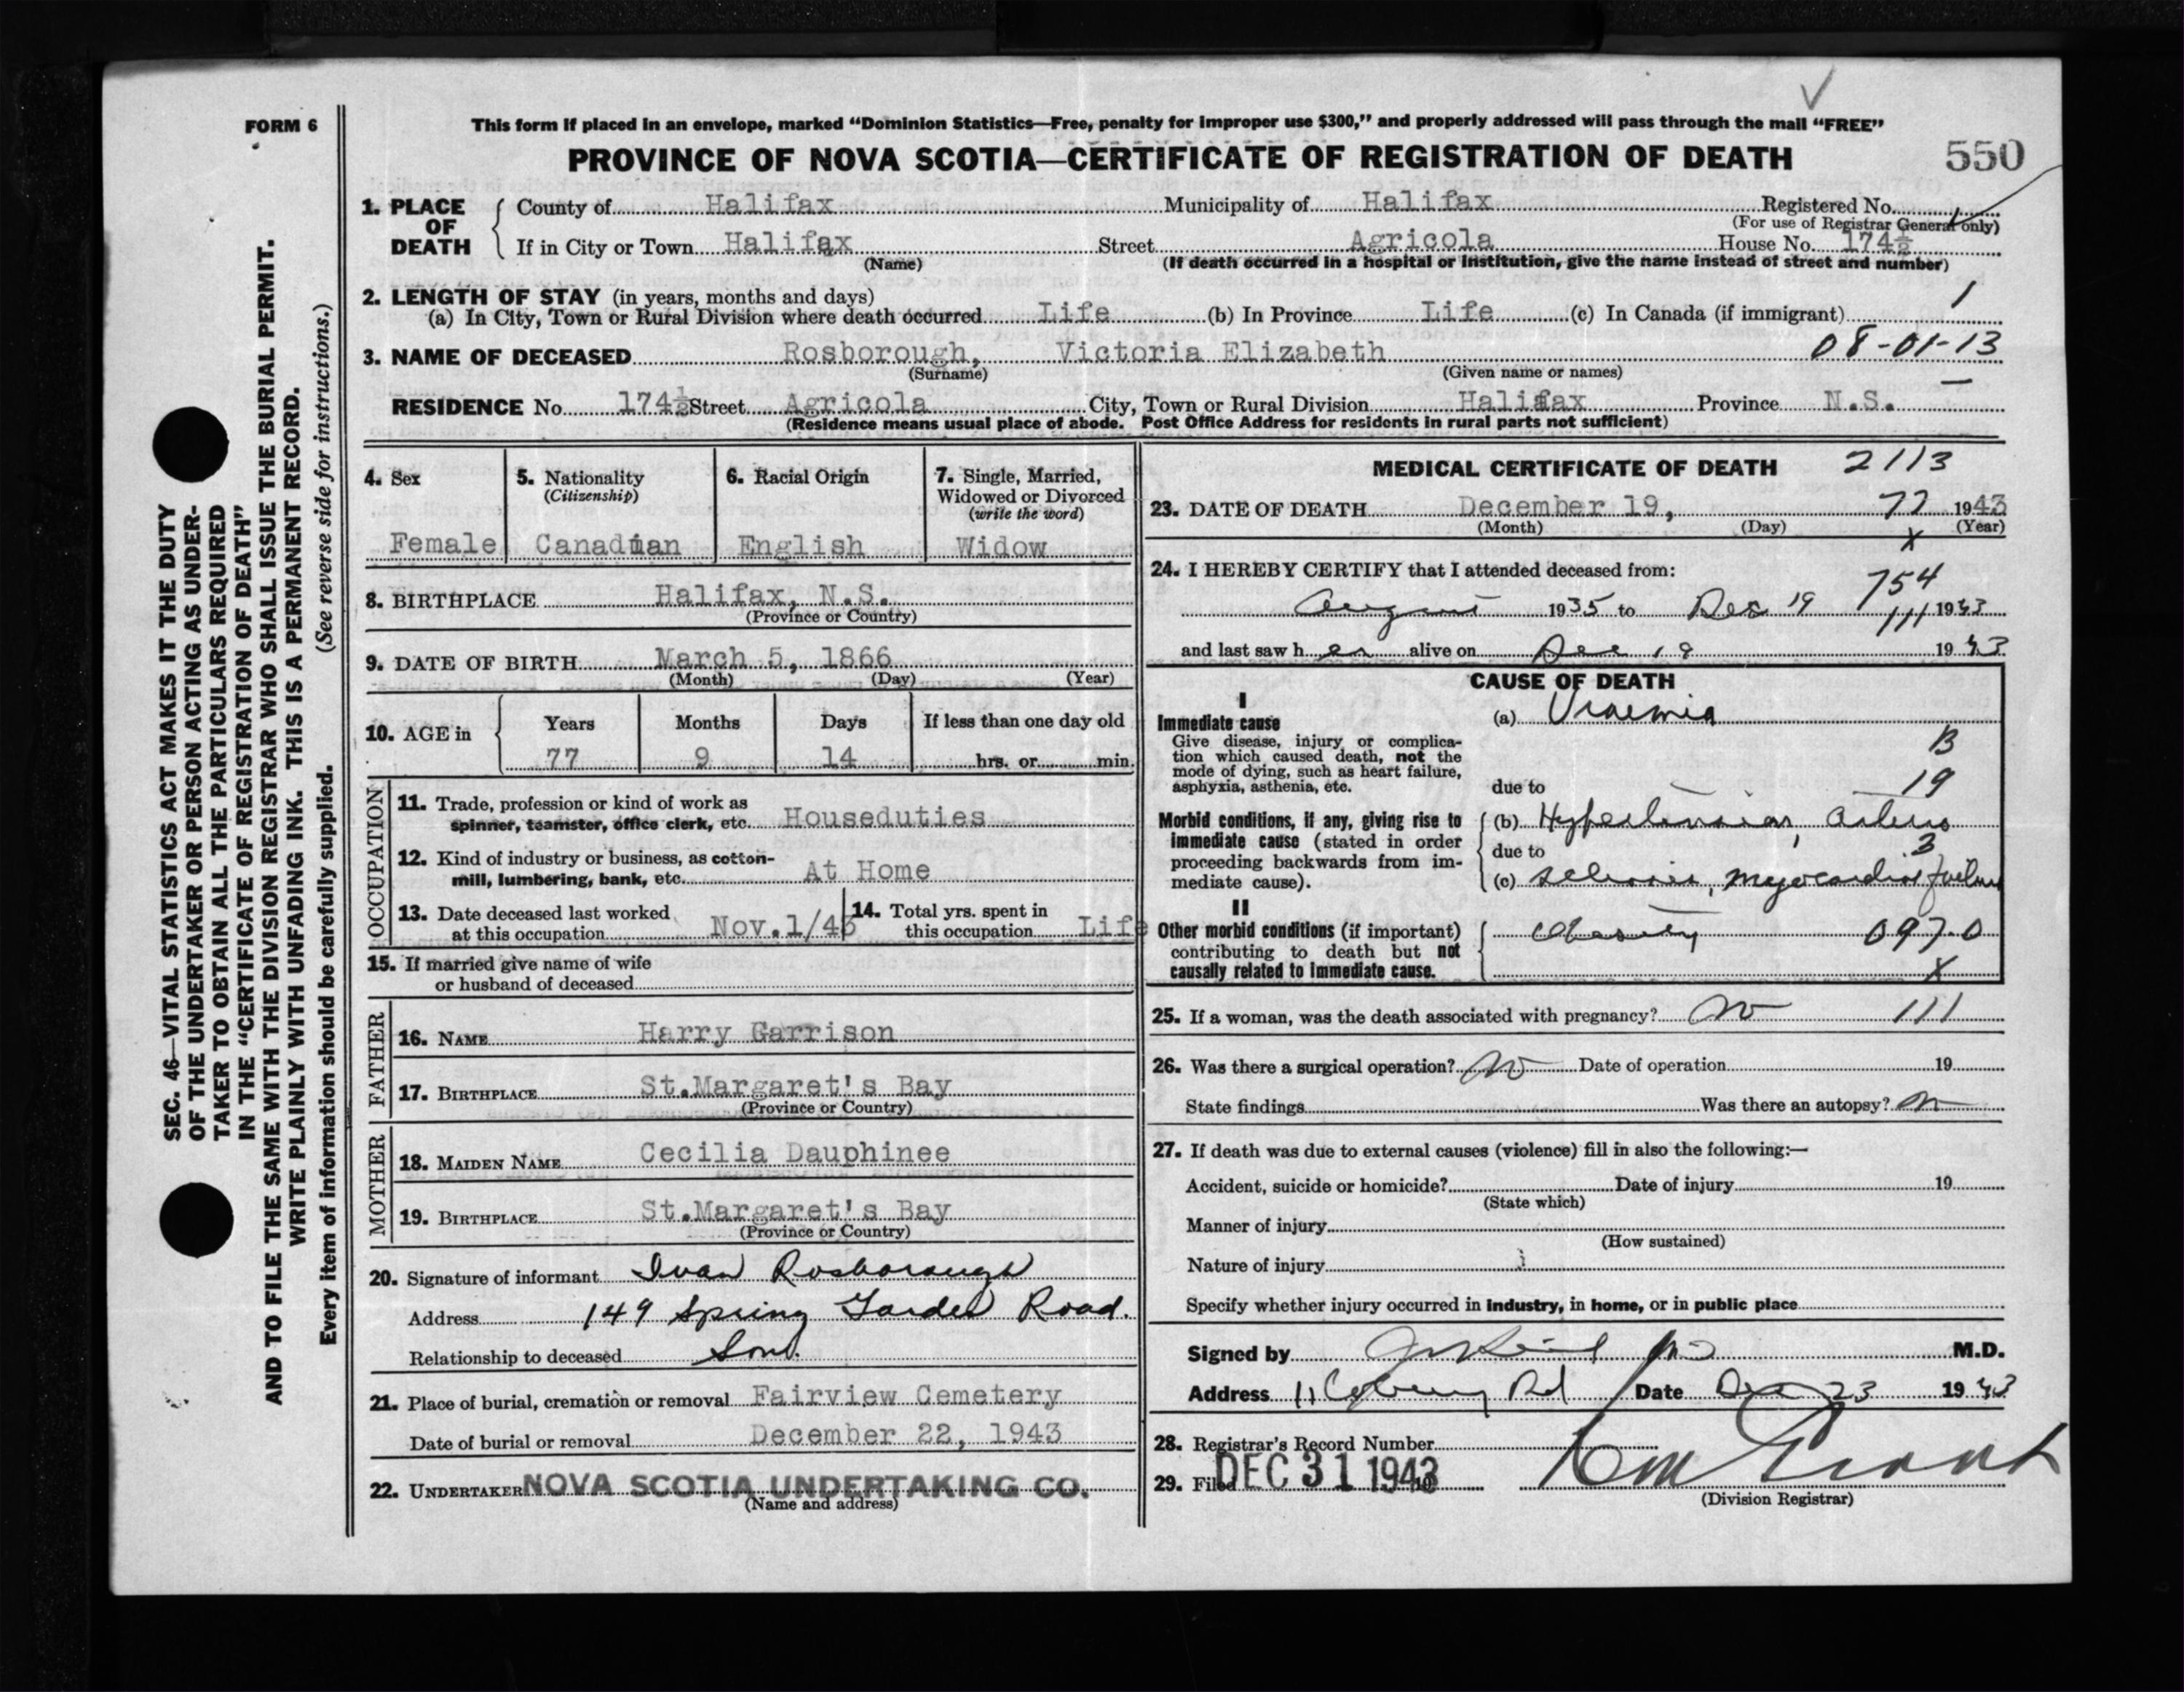 FORM 6
This form if placed in an envelope, marked “Dominion Statistics—Free, penalty for improper use $300,” and properly addressed will pass through the mail “FREE”
PROVINCE OF NOVA SCOTIA—CERTIFICATE OF REGISTRATION OF DEATH
550
1. PLACE OF DEATH
County of Halifax Municipality of Halifax Registered No.
(For use of Registrar General only)
If in City or Town Halifax Street Agricola House No. 174½
(Name) (If death occurred in a hospital or institution, give the name instead of street and number)
2. LENGTH OF STAY (in years, months and days)
(a) In City, Town or Rural Division where death occurred Life (b) In Province Life (c) In Canada (if immigrant) 1
3. NAME OF DECEASED Rosborough, Victoria Elizabeth 08-01-13
(Surname) (Given name or names)
RESIDENCE No. 174½ Street Agricola City, Town or Rural Division Halifax Province N.S.
(Residence means usual place of abode. Post Office Address for residents in rural parts not sufficient)
4. Sex
Female
5. Nationality
(Citizenship)
Canadian
6. Racial Origin
English
7. Single, Married,
Widowed or Divorced
(write the word)
Widow
8. BIRTHPLACE Halifax, N.S.
(Province or Country)
9. DATE OF BIRTH March 5, 1866
(Month) (Day) (Year)
10. AGE in
Years Months Days If less than one day old
77 9 14 hrs. or min.
OCCUPATION
11. Trade, profession or kind of work as
spinner, teamster, office clerk, etc. Houseduties
12. Kind of industry or business, as cotton-
mill, lumbering, bank, etc. At Home
13. Date deceased last worked
at this occupation Nov.1/43
14. Total yrs. spent in
this occupation Life
15. If married give name of wife
or husband of deceased
FATHER
16. NAME Harry Garrison
17. BIRTHPLACE St.Margaret's Bay
(Province or Country)
MOTHER
18. MAIDEN NAME Cecilia Dauphinee
19. BIRTHPLACE St.Margaret's Bay
(Province or Country)
20. Signature of informant Ivan Rosborough
Address 149 Spring Garden Road.
Relationship to deceased Son.
21. Place of burial, cremation or removal Fairview Cemetery
Date of burial or removal December 22, 1943
22. UNDERTAKER NOVA SCOTIA UNDERTAKING CO.
(Name and address)
MEDICAL CERTIFICATE OF DEATH 2113
23. DATE OF DEATH December 19, 77 1943
(Month) (Day) (Year)
X
24. I HEREBY CERTIFY that I attended deceased from:
754
August 1935 to Dec 19 111 1943
and last saw her alive on Dec 19 1943
CAUSE OF DEATH
I
Immediate cause
Give disease, injury or complica-
tion which caused death, not the
mode of dying, such as heart failure,
asphyxia, asthenia, etc.
(a) Uraemia
B
19
due to
Morbid conditions, if any, giving rise to
immediate cause (stated in order
proceeding backwards from im-
mediate cause).
(b) Hypertension, arterio
due to 3
(c) sclerosis, myocardial failure
II
Other morbid conditions (if important)
contributing to death but not
causally related to immediate cause.
Obesity 097.0
X
25. If a woman, was the death associated with pregnancy? No 111
26. Was there a surgical operation? No Date of operation 19
State findings Was there an autopsy? No
27. If death was due to external causes (violence) fill in also the following:—
Accident, suicide or homicide? Date of injury 19
(State which)
Manner of injury
(How sustained)
Nature of injury
Specify whether injury occurred in industry, in home, or in public place
Signed by M.D.
Address 11 Coburg Rd Date Dec 23 1943
28. Registrar's Record Number
29. Filed DEC 31 1943
(Division Registrar)
SEC. 46—VITAL STATISTICS ACT MAKES IT THE DUTY
OF THE UNDERTAKER OR PERSON ACTING AS UNDER-
TAKER TO OBTAIN ALL THE PARTICULARS REQUIRED
IN THE “CERTIFICATE OF REGISTRATION OF DEATH”
AND TO FILE THE SAME WITH THE DIVISION REGISTRAR WHO SHALL ISSUE THE BURIAL PERMIT.
WRITE PLAINLY WITH UNFADING INK. THIS IS A PERMANENT RECORD.
Every item of information should be carefully supplied. (See reverse side for instructions.)